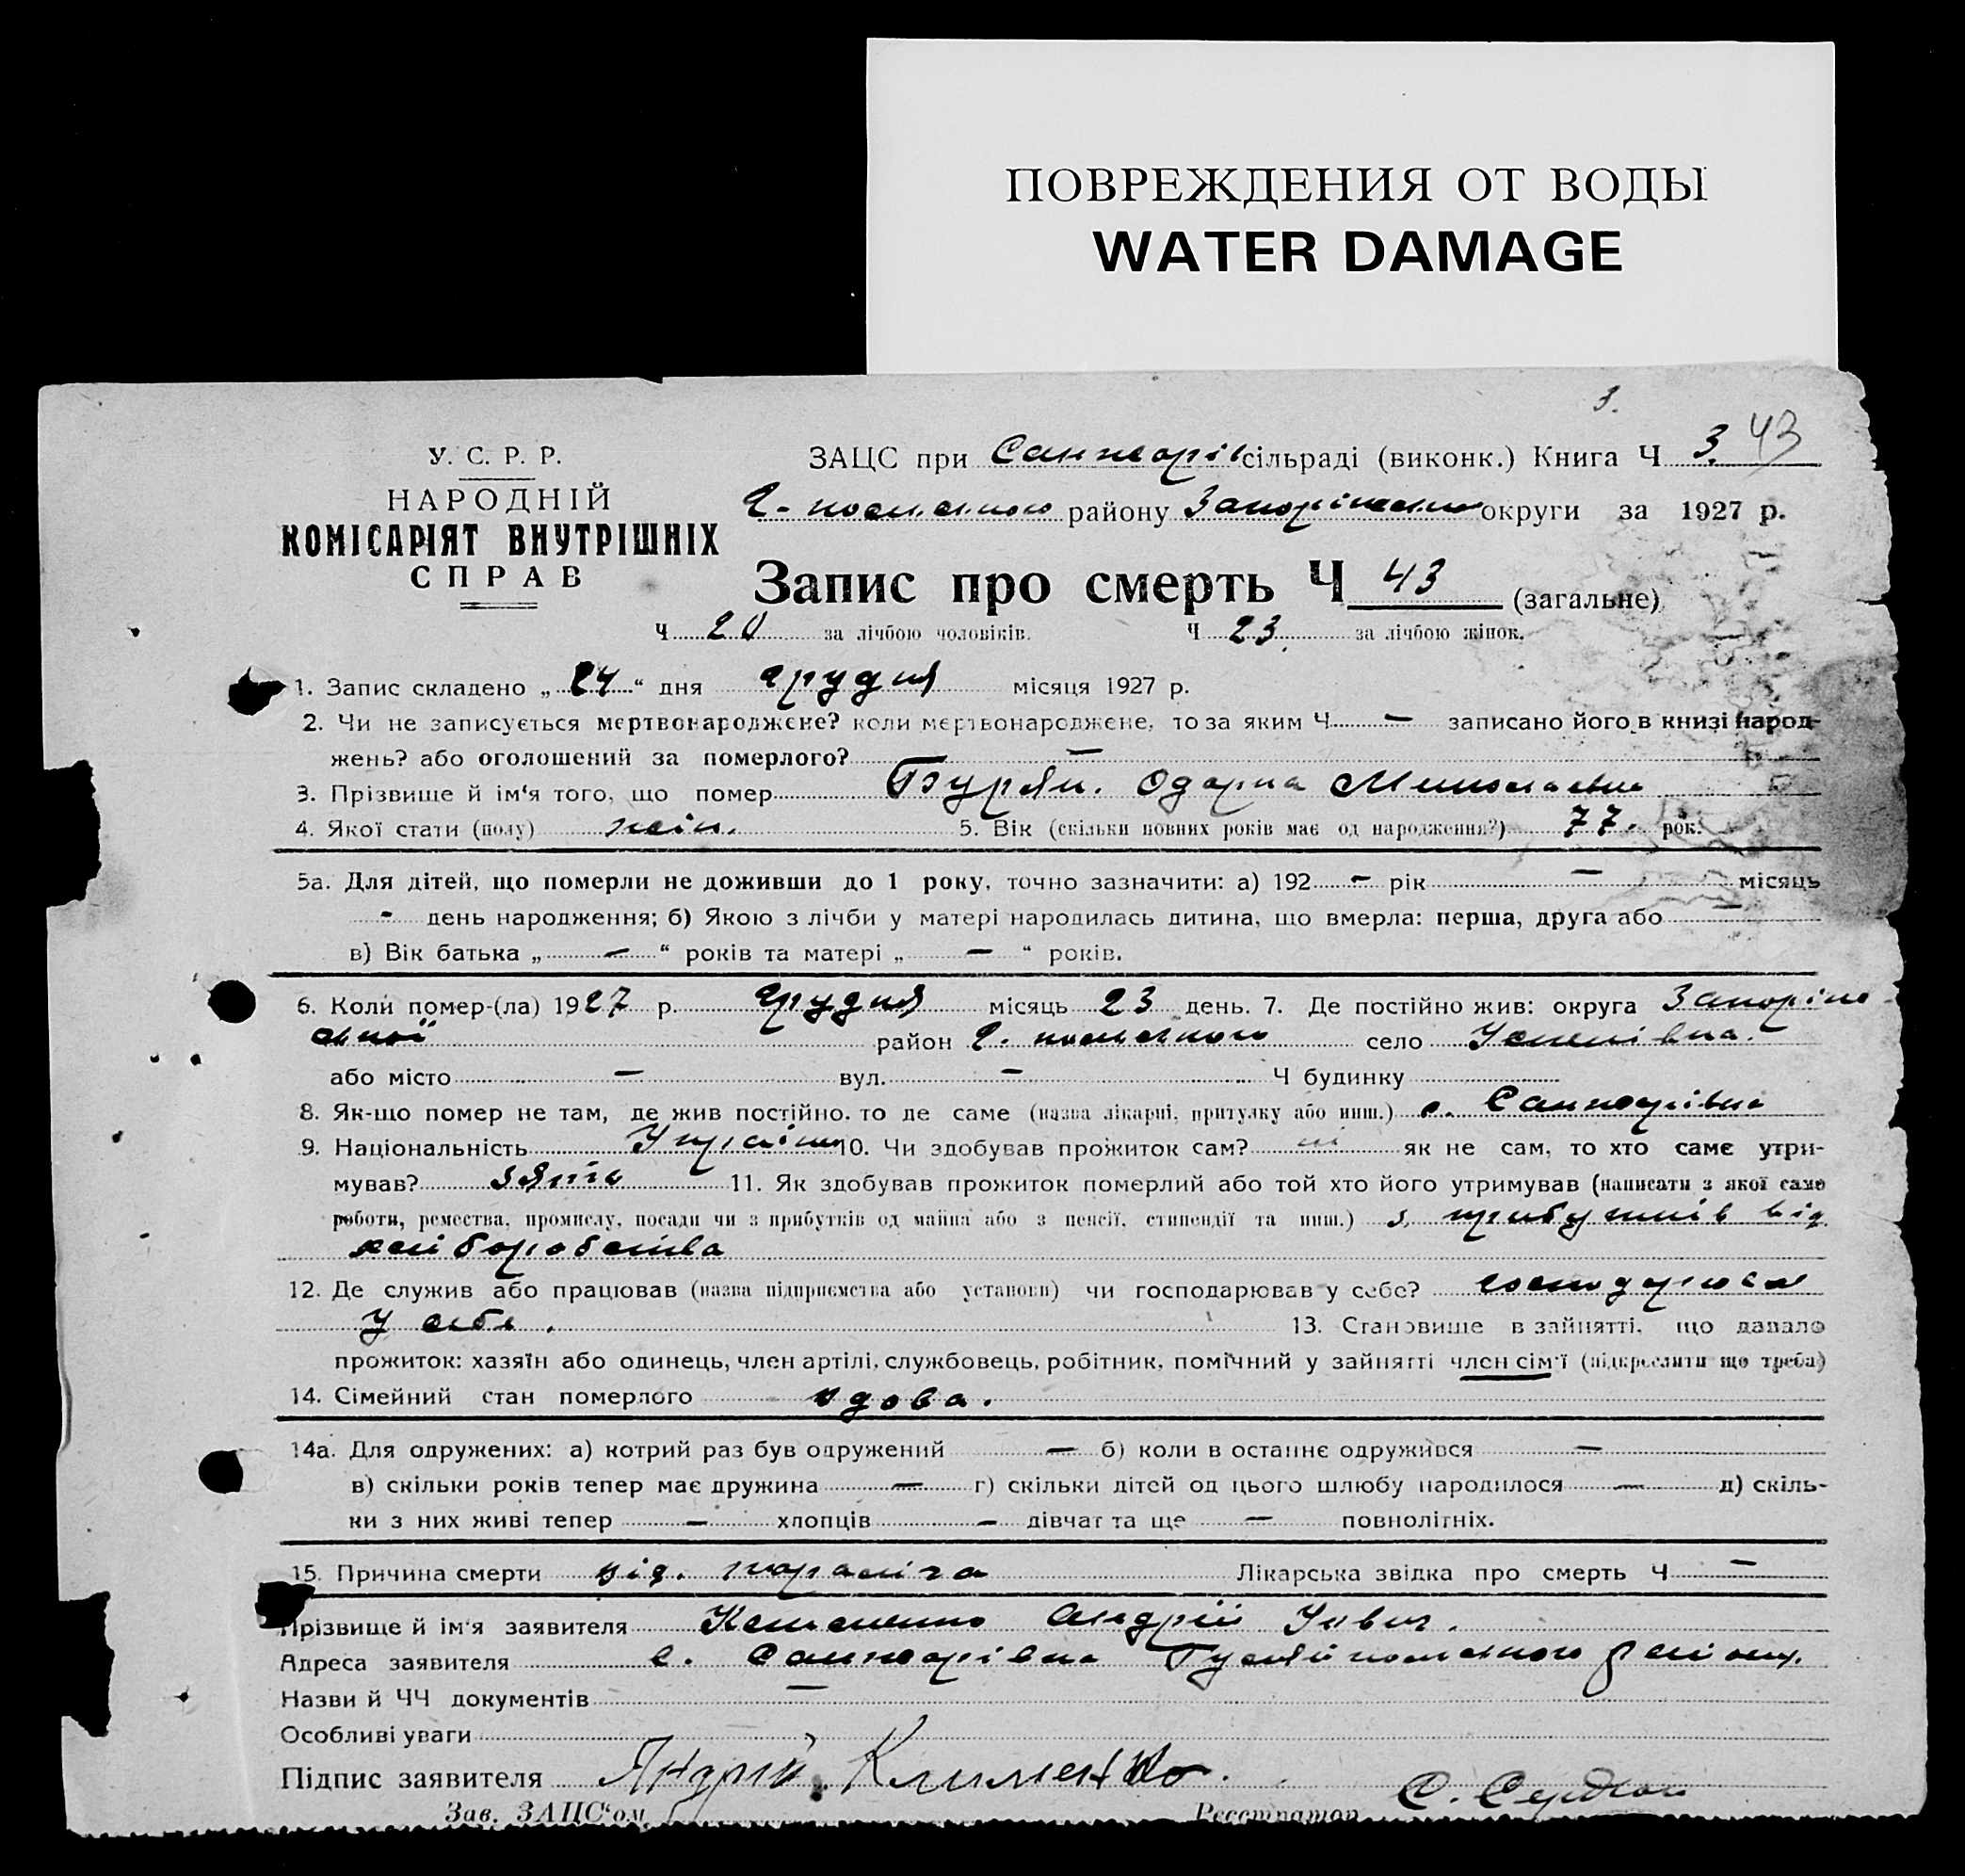 ПОВРЕЖДЕНИЯ ОТ ВОДЫ
WATER DAMAGE
3.
У. С. Р. Р.
НАРОДНІЙ
КОМІСАРІЯТ ВНУТРІШНІХ
СПРАВ
ЗАЦС при Санжарів сільраді (виконк.) Книга Ч 3. 43
Г-польского району Запоріжської округи за 1927 р.
Запис про смерть Ч 43 (загальне)
Ч 20 за лічбою чоловіків. Ч 23. за лічбою жінок.
1. Запис складено „ 24 “ дня грудня місяця 1927 р.
2. Чи не записується мертвонароджене? коли мертвонароджене, то за яким Ч — записано його в книзі народ-
жень? або оголошений за померлого? —
3. Прізвище й ім‘я того, що помер Буряк. Одарка Миколаєвна
4. Якої стати (полу) жін. 5. Вік (скільки повних років має од народження?) 77. рок.
5а. Для дітей, що померли не доживши до 1 року, точно зазначити: а) 192 - рік — місяць
- день народження; б) Якою з лічби у матері народилась дитина, що вмерла: перша, друга або —
в) Вік батька „ — “ років та матері „ — “ років.
6. Коли помер-(ла) 1927 р. грудня місяць 23 день. 7. Де постійно жив: округа Запоріж-
ської район Г. польського село Успенівка.
або місто — вул. — Ч будинку
8. Як-що помер не там, де жив постійно. то де саме (назва лікарні, притулку або инш.) с. Санжарівка
9. Національність Україн 10. Чи здобував прожиток сам? ні як не сам, то хто саме утри-
мував? зять 11. Як здобував прожиток померлий або той хто його утримував (написати з якої саме
роботи, ремества, промислу, посади чи з прибутків од майна або з пенсії, стипендії та инш.) з прибутків від
хліборобства
12. Де служив або працював (назва підприємства або установи) чи господарював у себе? господарював
у себе. 13. Становище в зайнятті, що давало
прожиток: хазяїн або одинець, член артілі, службовець, робітник, помічний у зайнятті член сім‘ї (підкреслити що треба)
14. Сімейний стан померлого вдова.
14а. Для одружених: а) котрий раз був одружений — б) коли в останнє одружився —
в) скільки років тепер має дружина — г) скільки дітей од цього шлюбу народилося — д) скіль-
ки з них живі тепер — хлопців — дівчат та ще — повнолітніх.
15. Причина смерти від. параліча Лікарська звідка про смерть Ч —
Прізвище й ім‘я заявителя Клименко Андрій
Адреса заявителя с. Санжарівка Гуляйпольського району.
Назви й ЧЧ документів —
Особливі уваги
Підпис заявителя Андрій Клименко.
Зав. ЗАЦС‘ом Реєстратор С. Сердюк